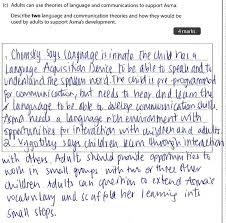 (c) Adults can use theories of language and communications to support Asma.
Describe two language and communication theories and how they would be
used by adults to support Asma's development.
4 marks
1. Chomsky says language is innate. The child has a
Language Acquisition Device to be able to speak and to
understand the spoken word. The child is pre-programmed
for communication, but needs to hear and learn the
language to be able to develop communication skills.
Asma needs a language rich environment with
opportunities for interaction with children and adults.
2. Vygotsky says children learn through interaction
with others. Adults should provide opportunities to
work in small groups with two or three other
children. Adults can question to extend Asma's
vocabulary and scaffold her learning into
small steps.